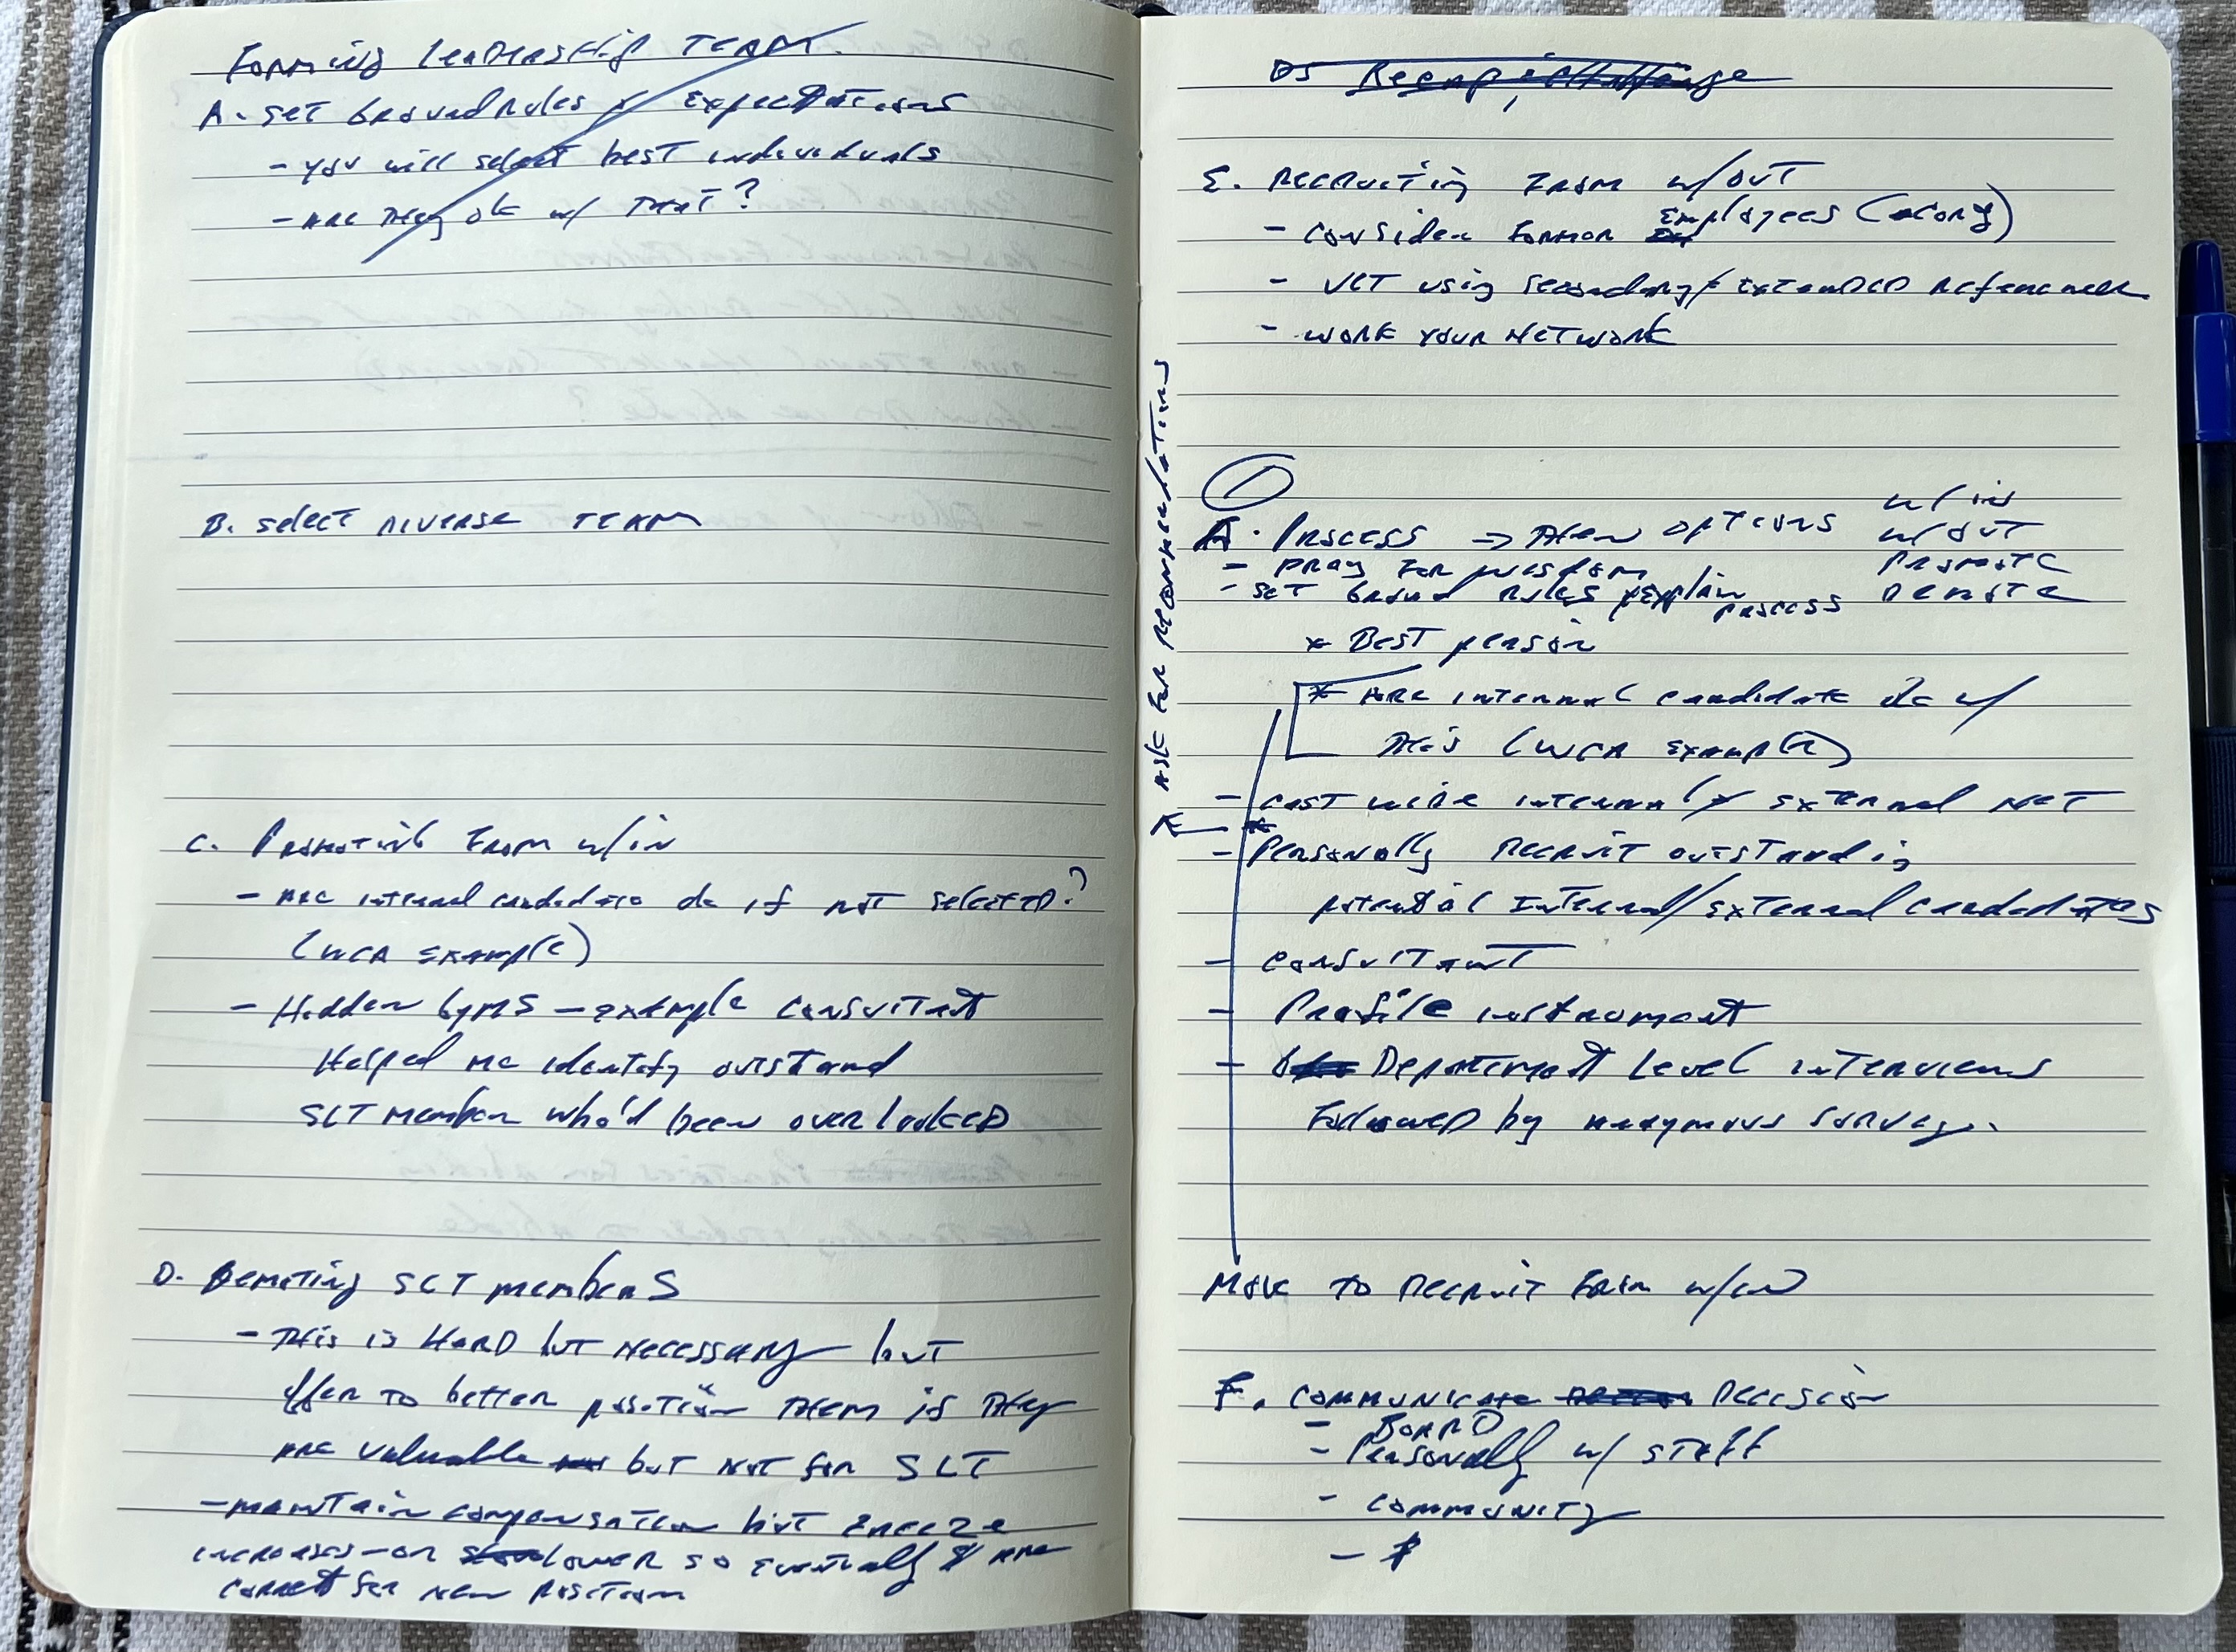 Forming Leadership Team.
A. Set Ground rules & Expectations
- You will select best individuals
- Are they ok w/ that?
B. Select Diverse Team
C. Promoting From w/in
- Are internal candidates ok if not selected?
(WCA Example)
- Hidden Gyms - example Consultant
Helped me identify outstand
SLT member who'd been overlooked
D. Demoting SLT members
- This is Hard but Necessary but
offer to better position them if they
are valuable but not for SLT
- maintain compensation but freeze
increases - or lower so eventually $ are
correct for new position
E. Recruiting From w/out
- Consider Former Employees
- Vet using Secondary/extended references
- Work your Network
①
A. Process ⇒ Then options w/in
w/out
- Pray for wisdom Promote
- Set Ground Rules / Explain process Demote
* Best person
* Are internal candidate ok w/
this (WCA Example)
- Cast wide internal & external net
- Personally recruit outstanding
potential Internal/external candidates
- Consultant
- Profile instrument
- Department Level interviews
Followed by anonymous survey.
Ask for recommendations
Move to Recruit From w/in
F. Communicate Decision
- Board
- Personally w/ staff
- Community